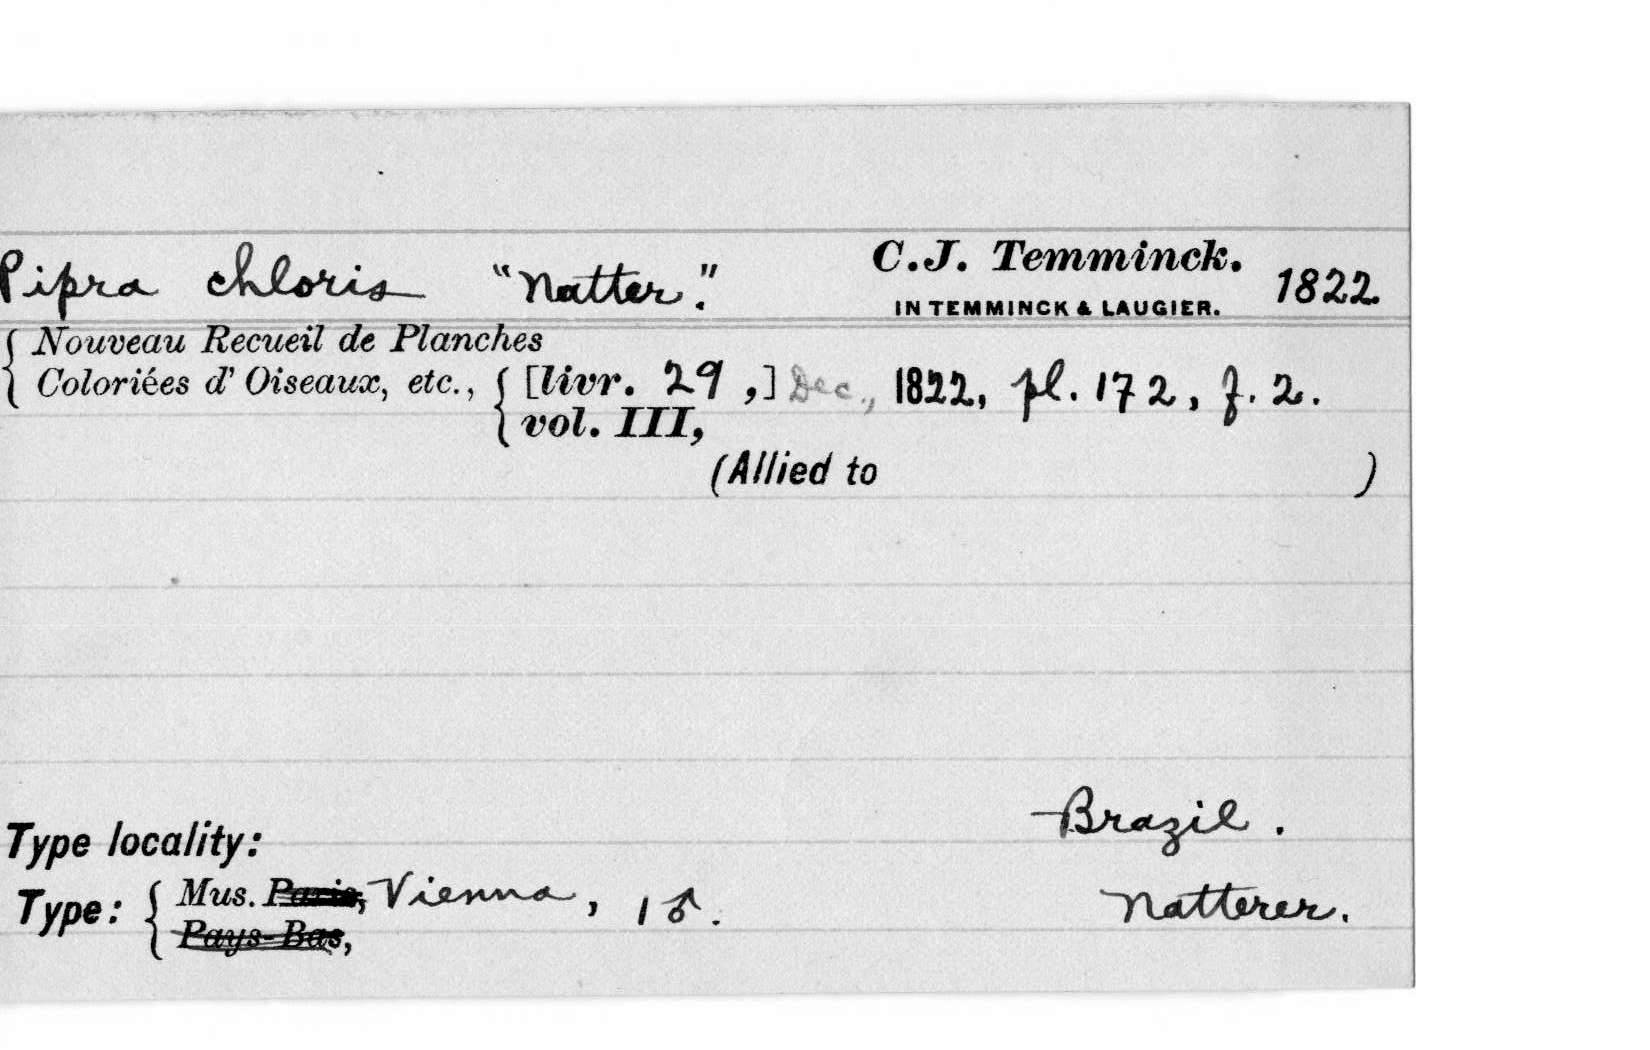 Pipra chloris "Natter." C.J. Temminck. 1822.
IN TEMMINCK & LAUGIER.
Nouveau Recueil de Planches
Coloriées d' Oiseaux, etc., [livr. 29,] Dec., 1822, pl. 172, f. 2.
vol. III,
(Allied to )
Type locality: Brazil.
Type: Mus. Paris, Vienna, 1♂. Natterer.
Pays-Bas,